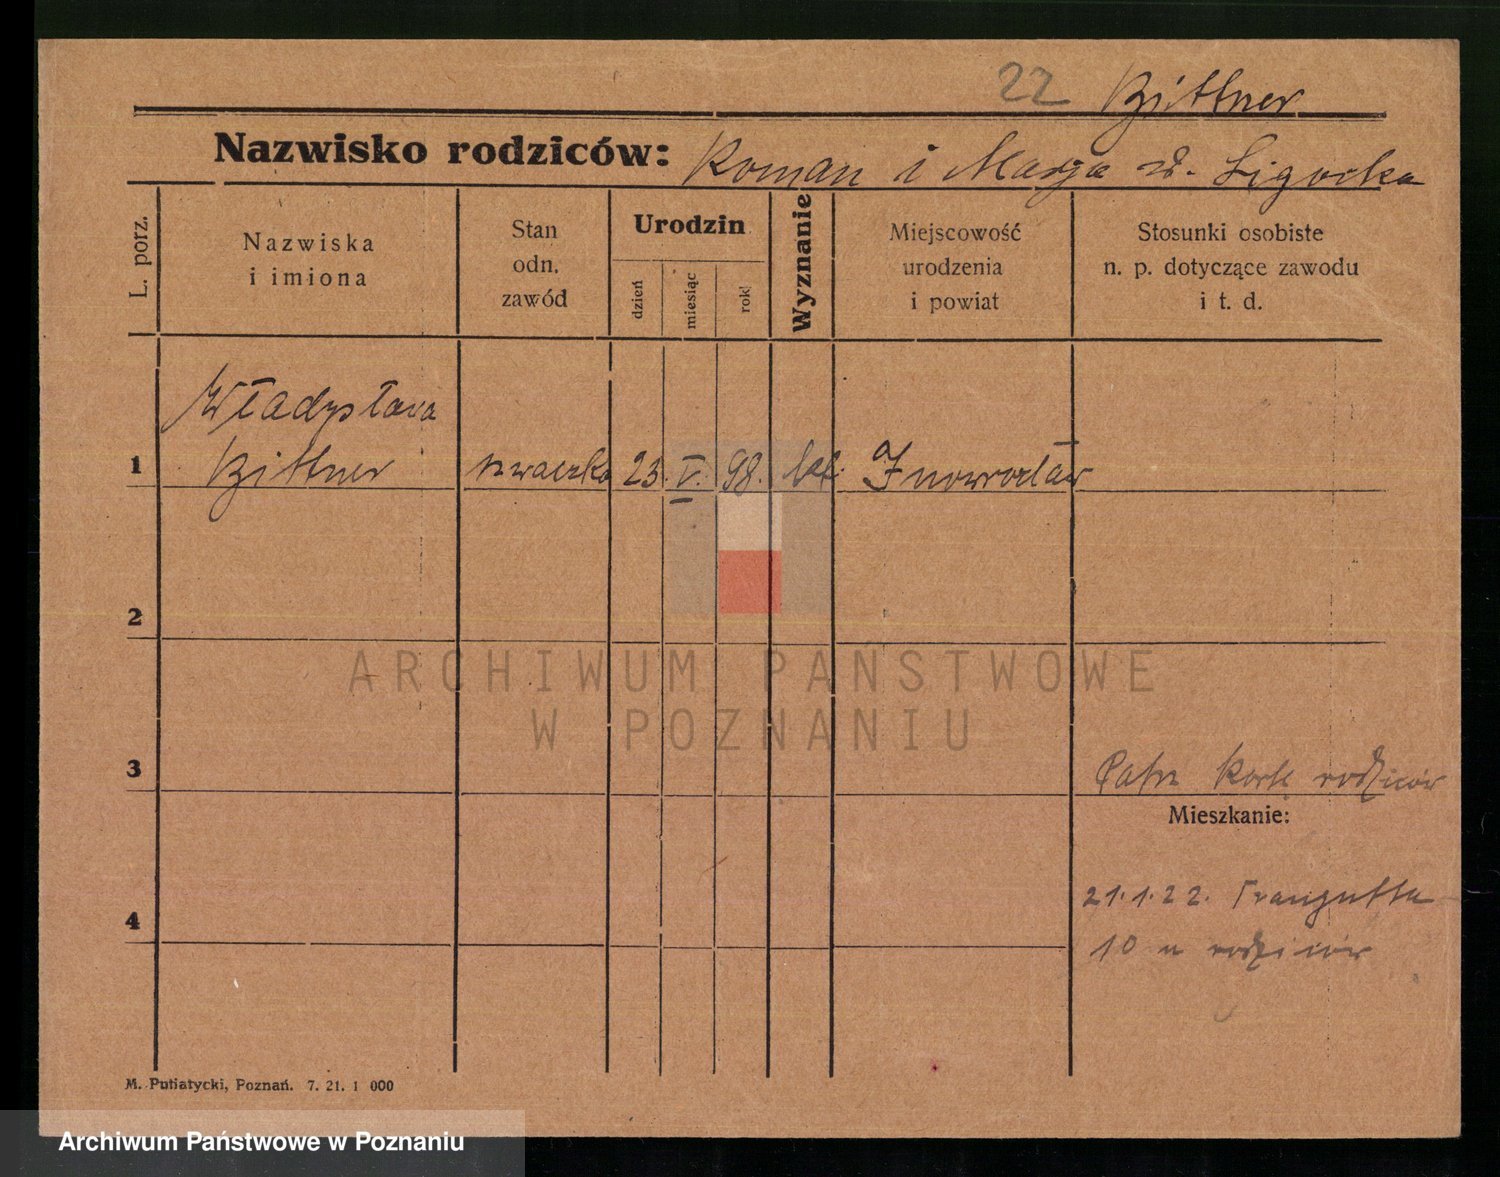 22 Bittner
Nazwisko rodziców: Roman i Marja z d. Ligocka
L. porz.
Nazwiska
i imiona
Stan
odn.
zawód
Urodzin
dzień
miesiąc
rok
Wyznanie
Miejscowość
urodzenia
i powiat
Stosunki osobiste
n. p. dotyczące zawodu
i t. d.
Władysława
1 Bittner szwaczka 23. V. 98. kat. Inowrocław
2
ARCHIWUM PAŃSTWOWE
W POZNANIU
3 Patrz kartę rodziców
Mieszkanie:
21.1.22. Traugutta
4
10 u rodziców
M. Putiatycki, Poznań. 7. 21. 1 000
Archiwum Państwowe w Poznaniu